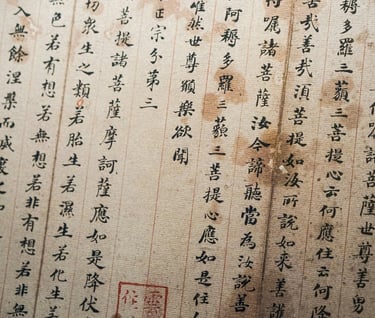 諸菩薩世尊善男
耨多羅三藐三菩提心云何應住云何降
哉善哉須菩提如汝所說如來善護
囑諸菩薩汝今諦聽當為汝說善
阿耨多羅三藐三菩提心應如是住
唯然世尊願樂欲聞
正宗分第三
菩提諸菩薩摩訶薩應如是降伏
眾生之類若胎生若濕生若化生若
無色若有想若無想若非有想若非無
入無餘涅槃而滅度之